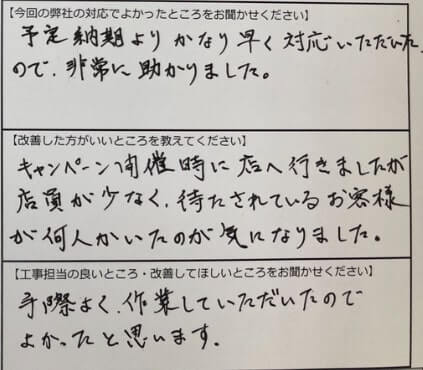 【今回の弊社の対応でよかったところをお聞かせください】
予定納期よりかなり早く対応いただいた
ので、非常に助かりました。
【改善した方がいいところを教えてください】
キャンペーン開催時に店へ行きましたが
店員が少なく、待たされているお客様
が何人かいたのが気になりました。
【工事担当の良いところ・改善してほしいところをお聞かせください】
手際よく、作業していただいたので
よかったと思います。